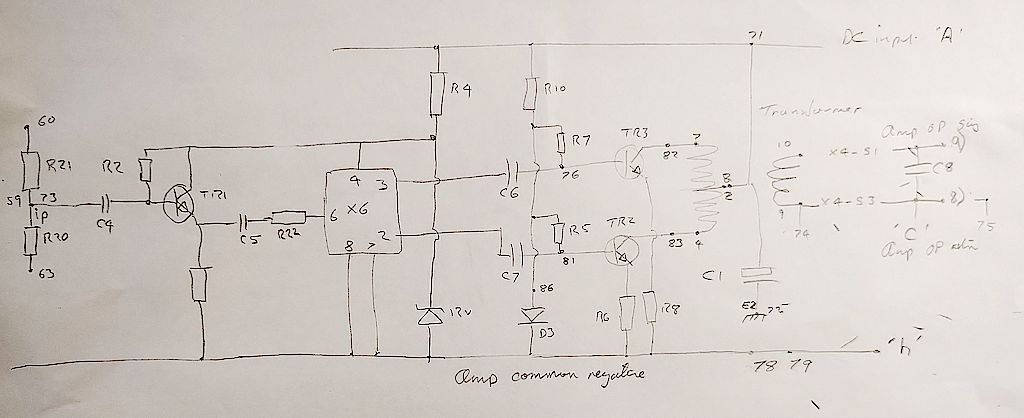 71
DC input 'A'
R4
R10
Transformer
60
R7
TR3
Amp OP sig
R21
R2
82
7
10
X4-S1
9)
C8
59
73
TR1
4
3
C6
76
3
2
ip
C4
X6
6
R22
C5
R5
TR2
X4-S3
8)
9
R20
2
74
75
8
7
C7
81
83
4
'C'
Amp OP rtn
63
C1
86
12V
D3
R6
R8
E2
78
79
'h'
Amp common negative